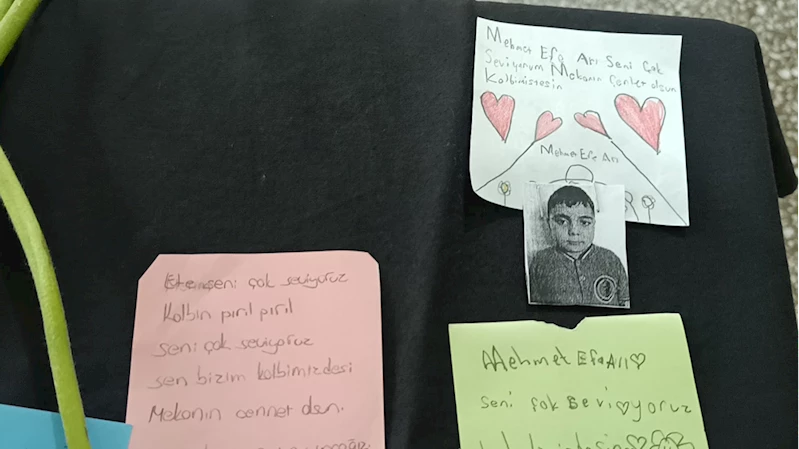 Mehmet Efe Arı Seni Çok
Seviyorum Mekanın Cenket olsun
Kalbimistesin
Mehmet Efe Arı
seni çok seviyoruz
Kalbin pırıl pırıl
seni çok seviyoruz
sen bizim kalbimizdesi
Mekanın cennet olsun.
Mehmet Efe Arı
seni çok seviyoruz